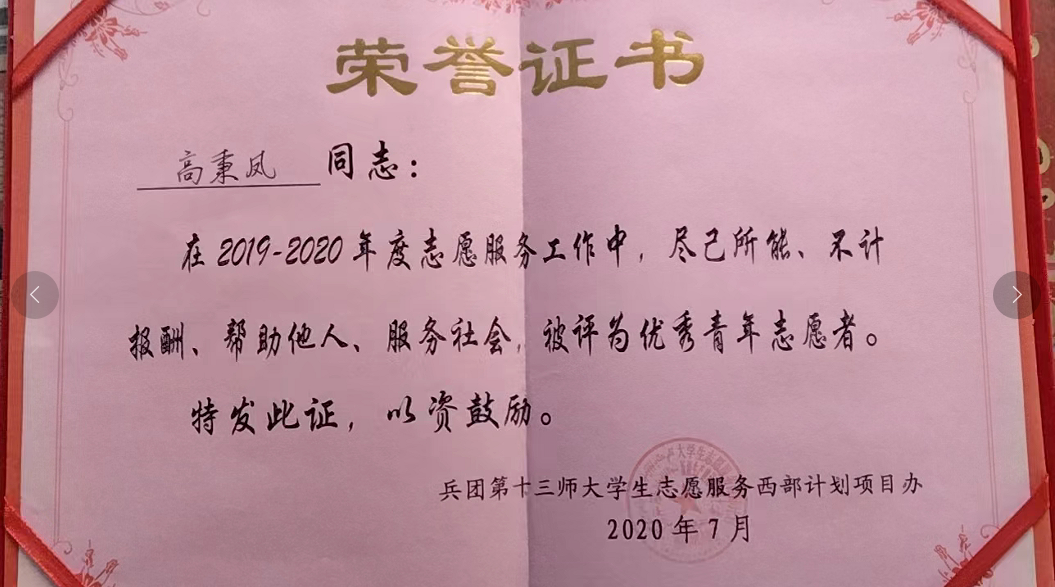 荣誉证书
高秉凤 同志：
在2019-2020年度志愿服务工作中，尽己所能、不计
报酬、帮助他人、服务社会，被评为优秀青年志愿者。
特发此证，以资鼓励。
兵团第十三师大学生志愿服务西部计划项目办
2020年7月